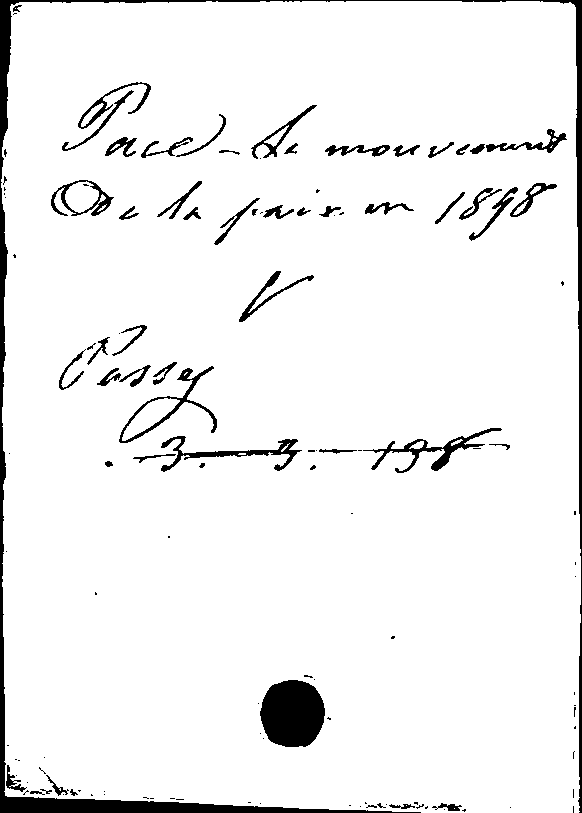 Pace - Le mouvement
De la paix en 1898
V
Passy
3. 3. 138